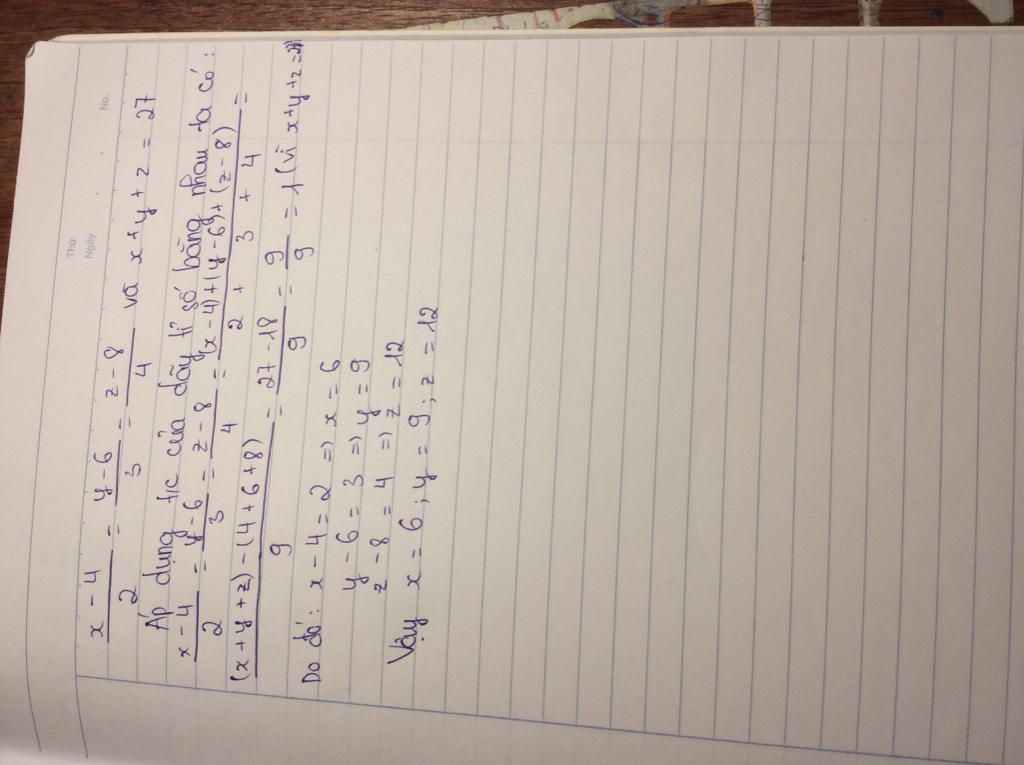 Thứ
Ngày
No.
x - 4 / 2 = y - 6 / 3 = z - 8 / 4 và x + y + z = 27
Áp dụng t/c của dãy tỉ số bằng nhau ta có :
x - 4 / 2 = y - 6 / 3 = z - 8 / 4 = (x - 4) + (y - 6) + (z - 8) / 2 + 3 + 4 =
(x + y + z) - (4 + 6 + 8) / 9 = 27 - 18 / 9 = 9 / 9 = 1 (vì x + y + z = 27)
Do đó : x - 4 = 2 => x = 6
y - 6 = 3 => y = 9
z - 8 = 4 => z = 12
Vậy x = 6 ; y = 9 ; z = 12